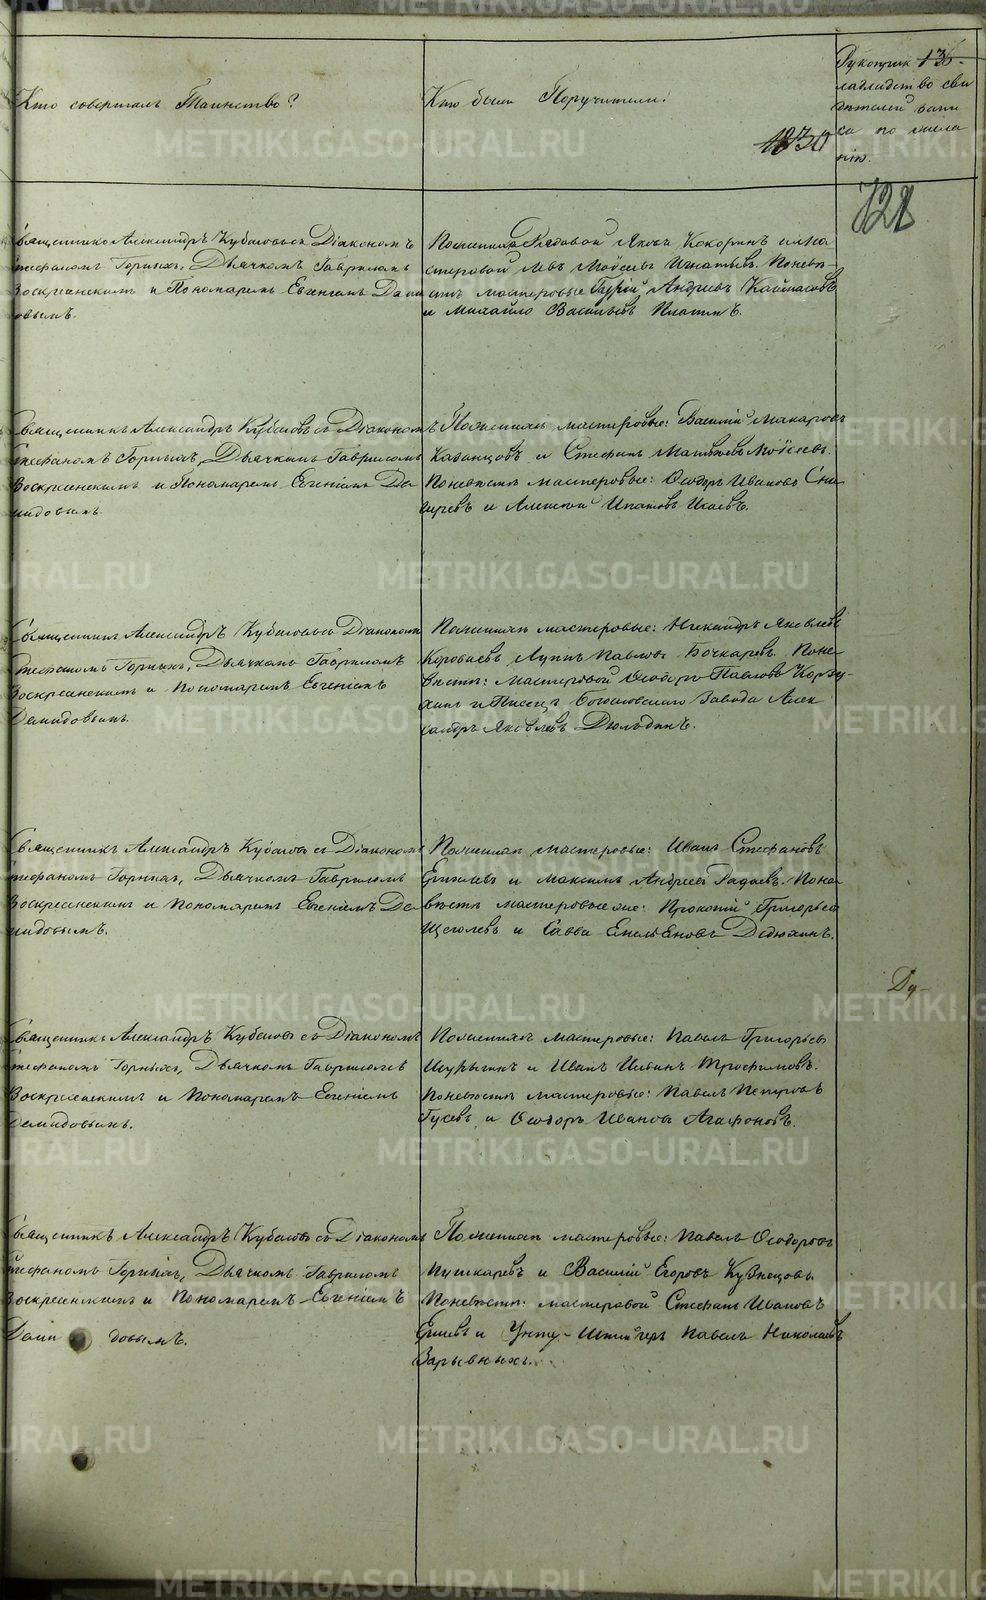 Кто совершалъ Таинство?
Кто были Поручители?
1830
Рукоприк 136.
ладательство сви
дѣтелей запи
си по жела
нію.
728
Священникъ Александръ Кубасовъ съ Діакономъ
Стефаномъ Горныхъ, Дьячкомъ Гавриломъ
Воскресенскимъ и Пономаремъ Евгеніемъ Деми
довымъ.
По женихѣ Рядовой Яковъ Кокоринъ и ма
стеровой Левъ Моѵсеевъ Игнатьевъ. По невѣ
стѣ мастеровые Гурій Андреевъ
и Михайло Васильевъ
Священникъ Александръ Кубасовъ съ Діакономъ
Стефаномъ Горныхъ, Дьячкомъ Гавриломъ
Воскресенскимъ и Пономаремъ Евгеніемъ Де
мидовымъ.
По женихѣ мастеровые: Василій Макаровъ
Казанцовъ и Стефанъ Матвѣевъ Моѵсеевъ.
По невѣстѣ мастеровые: Ѳеодоръ Ивановъ Сни
гиревъ и Алексѣй Ипатовъ Исаевъ.
Священникъ Александръ Кубасовъ съ Діакономъ
Стефаномъ Горныхъ, Дьячкомъ Гавриломъ
Воскресенскимъ и Пономаремъ Евгеніемъ
Демидовымъ.
По женихѣ мастеровые: Никандръ Яковлевъ
Коробаевъ Луппъ Павловъ Бочкаревъ. По не
вѣстѣ: мастеровой Ѳеодоръ Павловъ Корзу
хинъ и Писецъ Богословскаго Завода Алек
сандръ Яковлевъ Дюльдинъ.
Священникъ Александръ Кубасовъ съ Діакономъ
Стефаномъ Горныхъ, Дьячкомъ Гавриломъ
Воскресенскимъ и Пономаремъ Евгеніемъ Де
мидовымъ.
По женихѣ мастеровые: Иванъ Стефановъ
и Максимъ Андреевъ Радаевъ. По не
вѣстѣ мастеровые же: Прокопій Григорьевъ
Щеголевъ и Савва Емельяновъ Дедюхинъ.
Ду-
Священникъ Александръ Кубасовъ съ Діакономъ
Стефаномъ Горныхъ, Дьячкомъ Гавриломъ
Воскресенскимъ и Пономаремъ Евгеніемъ
Демидовымъ.
По женихѣ мастеровые: Павелъ Григорьевъ
Шурыгинъ и Иванъ Ильинъ Трофимовъ.
По невѣстѣ мастеровые: Павелъ Петровъ
Гусевъ и Ѳеодоръ Ивановъ Агафоновъ.
Священникъ Александръ Кубасовъ съ Діакономъ
Стефаномъ Горныхъ, Дьячкомъ Гавриломъ
Воскресенскимъ и Пономаремъ Евгеніемъ
Деми довымъ.
По женихѣ мастеровые: Павелъ Ѳеодоровъ
Пушкаревъ и Василій Егоровъ Кузнецовъ
По невѣстѣ: мастеровой Стефанъ Ивановъ
и Унтеръ-Шихтмейстеръ Павелъ Николаевъ
Зарывныхъ.
METRIKI.GASO-URAL.RU